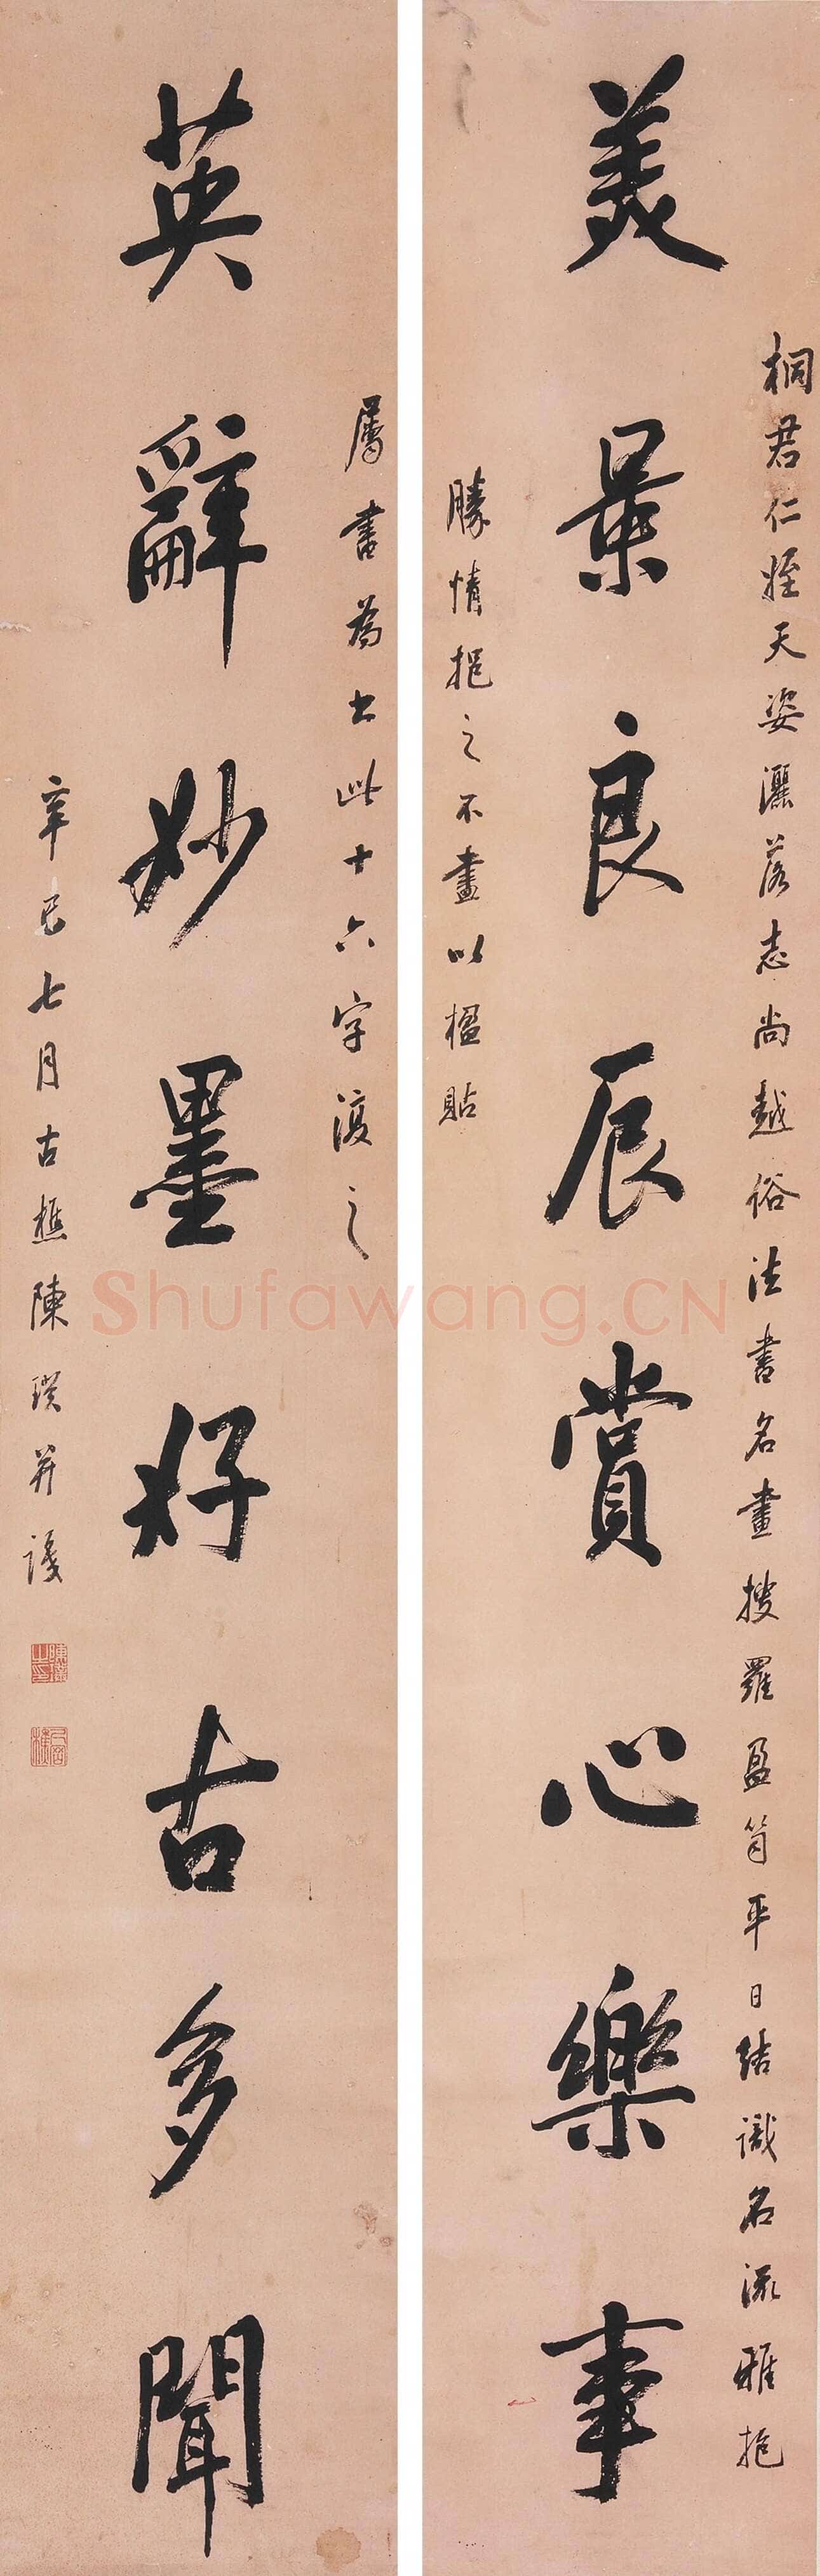 桐君仁姪天姿灑落志尚越俗法書名畫搜羅盈笥平日結識名流雅抱
美景良辰賞心樂事
勝情挹之不盡以楹貼
屬書為出此十六字復之
英辭妙墨好古多聞
辛巳七月古樵陳璞并識
Shufawang.CN